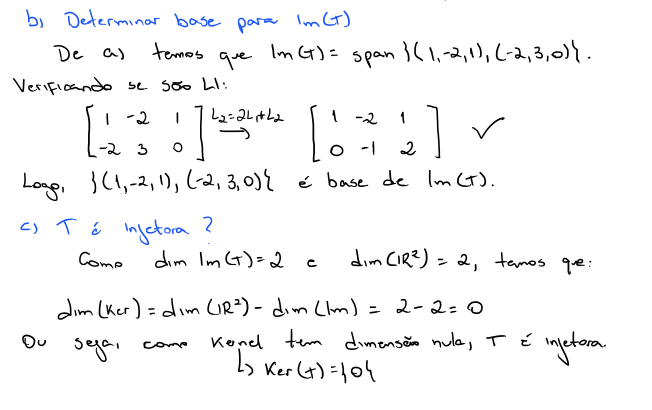 b) Determinar base para Im(T)
De a) temos que Im(T) = span {(1,-2,1), (-2,3,0)}.
Verificando se são LI:
[1 -2 1; -2 3 0] L2=2L1+L2 → [1 -2 1; 0 -1 2] ✓
Logo, {(1,-2,1), (-2,3,0)} é base de Im(T).
c) T é injetora?
Como dim Im(T) = 2 e dim(IR²) = 2, temos que:
dim(Ker) = dim(IR²) - dim(Im) = 2 - 2 = 0
Ou seja, como Kernel tem dimensão nula, T é injetora.
↳ Ker(T) = {0}